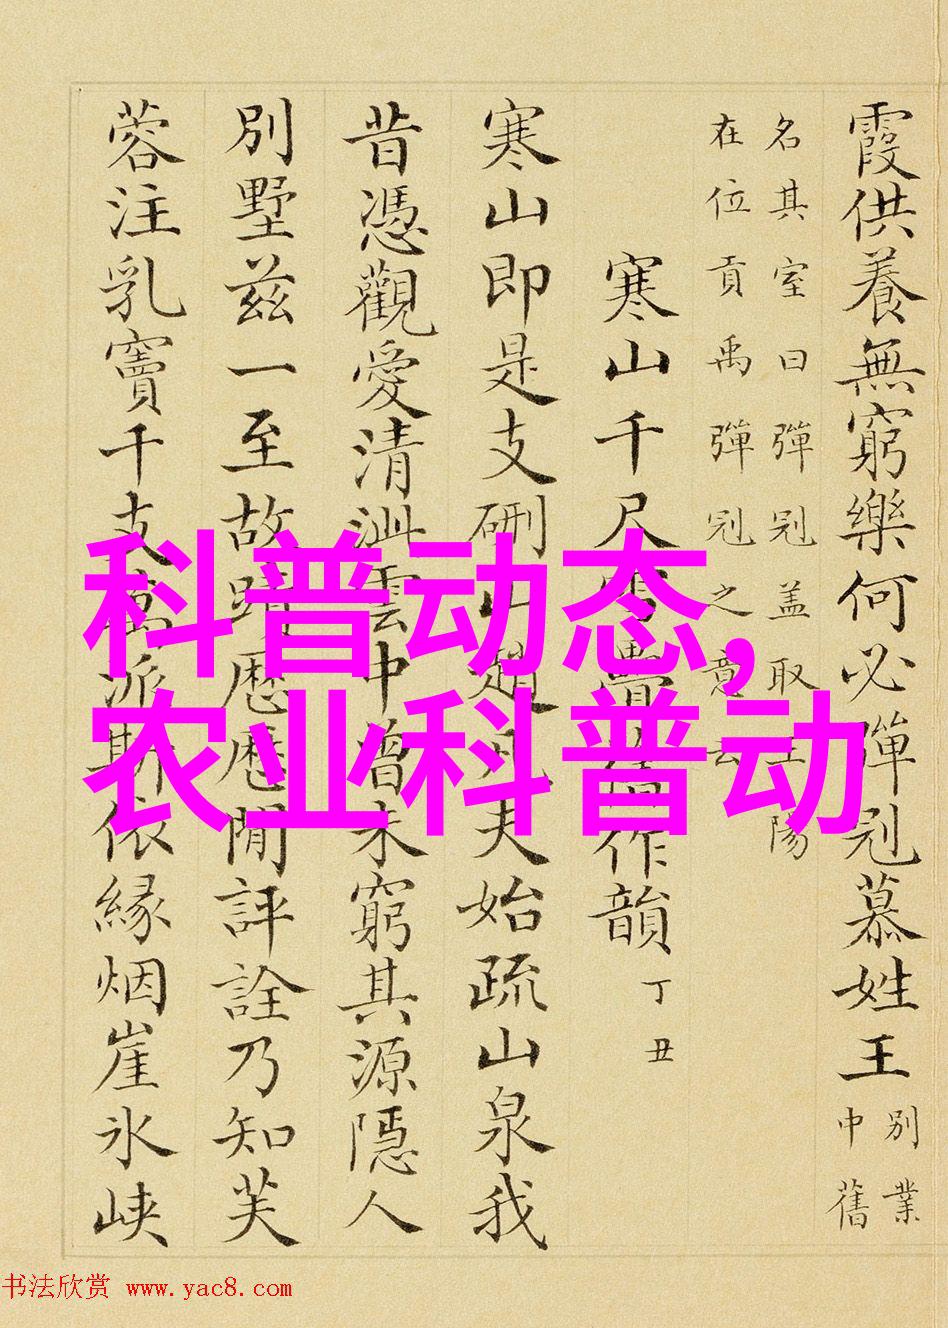 霞供養無窮樂何必彈冠慕姓王
別業
中舊
名其室曰彈冠盖取王陽
在位貢禹彈冠之意云
寒山千尺雪疊作韻 丁丑
寒山即是支硎山趙凡夫始疏山泉我
昔憑觀愛清泚雲中曾未窮其源隱人
別墅兹一至故蹟歷歷閒評詮乃知芙
蓉注乳竇千支萬派斯依緣烟崖氷峡
科普动态,
农业科普动
书法欣赏 www.yac8.com